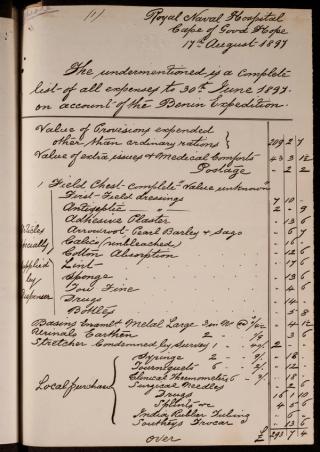 (1)
Royal Naval Hospital
Cape of Good Hope
17th August 1897
The undermentioned is a complete
list of all expenses to 30th June 1897
on account of the Benin Expedition.
Value of Provisions expended
other than ordinary rations 209 2 7
Value of extra issues & Medical Comforts 43 3 12
Postage - 2 2
1 Field Chest - Complete - Value unknown
First-Field dressings 7 10 -
Antiseptic " 2 - 9
Adhesive Plaster - 13 6
Arrowroot - Pearl Barley & Sago 6 7
Calico (unbleached) 16
Cotton Absorption 12 6
Lint 17 6
Sponge 13 6
Tow Fine 4 6
Drugs 14
Bottles 5 8
Articles
specially
supplied
by
Dispenser
Basins Enamel & Metal Large 4 12
Urinals Earthen 2 3 6
Stretcher Condemned by Survey 1 2 -
Syringe 2 18
Tourniquets 6 12
Clinical Thermometers 6 18
Surgical Needles 2 6
Drugs 16 1 10
Splints &c 4 5 6
India Rubber Tubing 6
Southeys Trocar 13 6
Local purchase
over £ 293 7 4